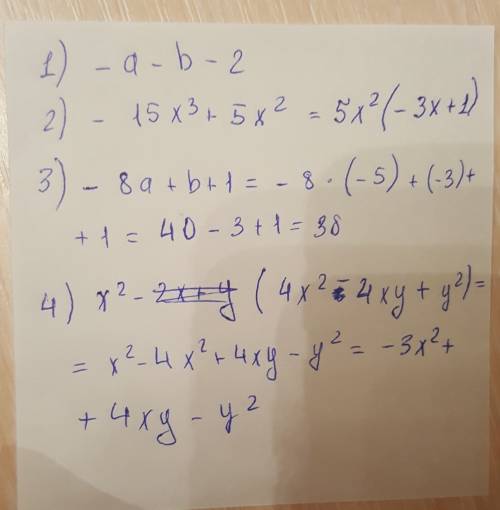 1) - a - b - 2
2) - 15x³ + 5x² = 5x²(-3x+1)
3) - 8a + b + 1 = - 8 · (-5) + (-3) +
+ 1 = 40 - 3 + 1 = 38
4) x² - (4x² - 4xy + y²) =
= x² - 4x² + 4xy - y² = -3x² +
+ 4xy - y²